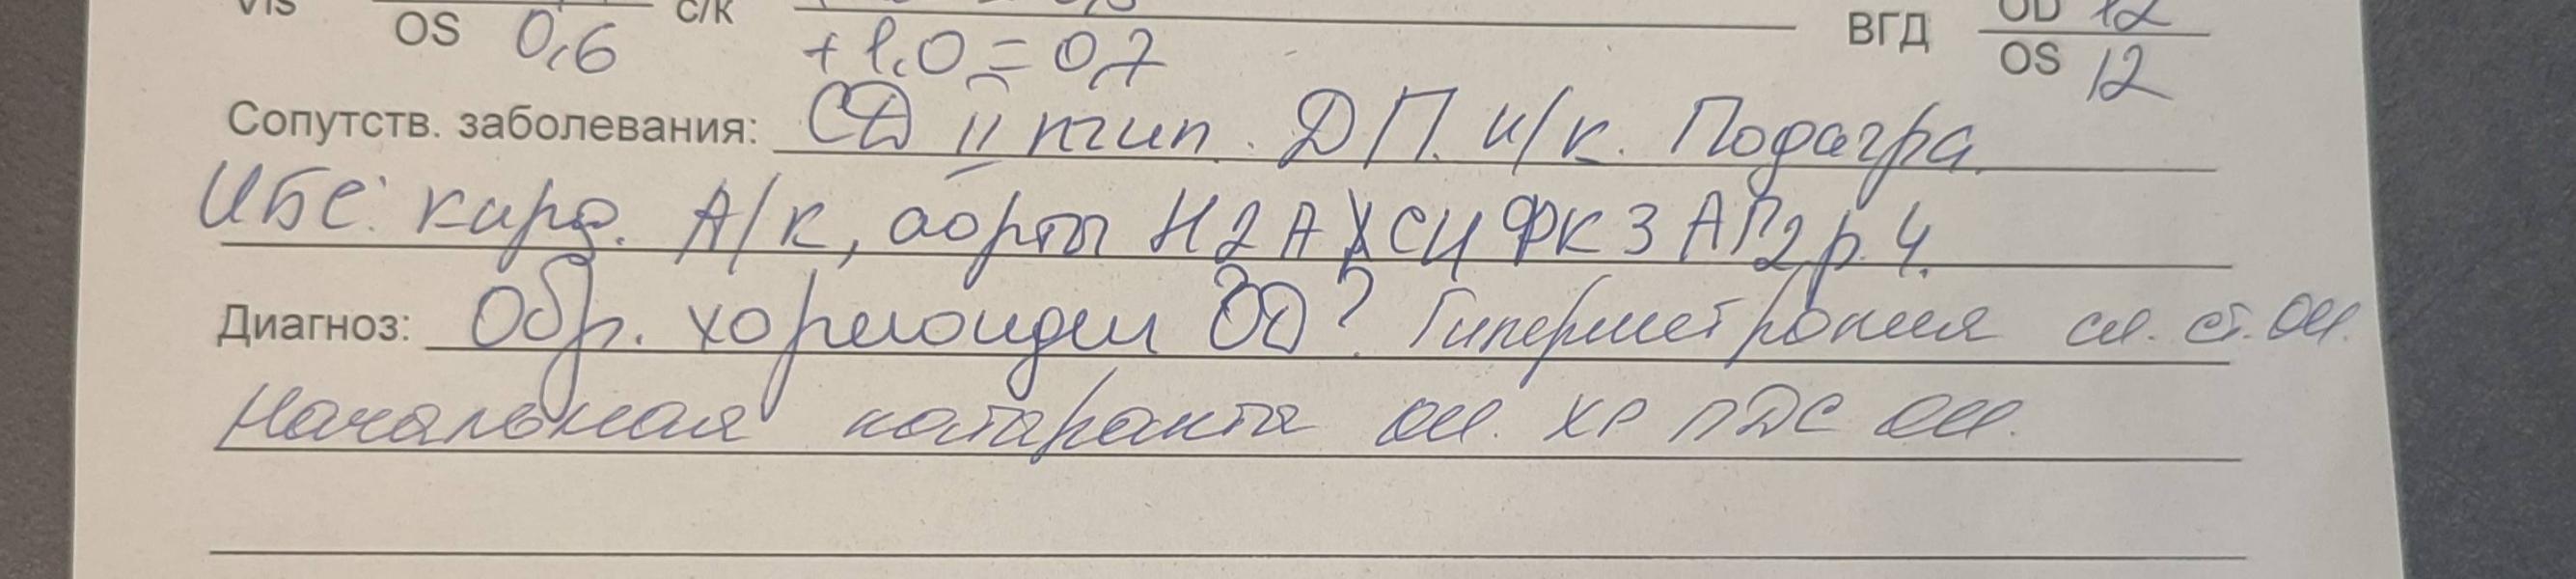 Vis OS 0,6 с/к +1,0 = 0,7 ВГД OD 12
OS 12
Сопутств. заболевания: СД II тип. ДП н/к. Подагра
ИБС: кард. А/к, аорты Н2А ХСН ФК 3 АГ 2 р. 4.
Диагноз: Обр. хориоидеи OD? Гиперметропия сл. ст. ОИ.
Начальная катаракта ОИ. ХР ПДС ОИ.